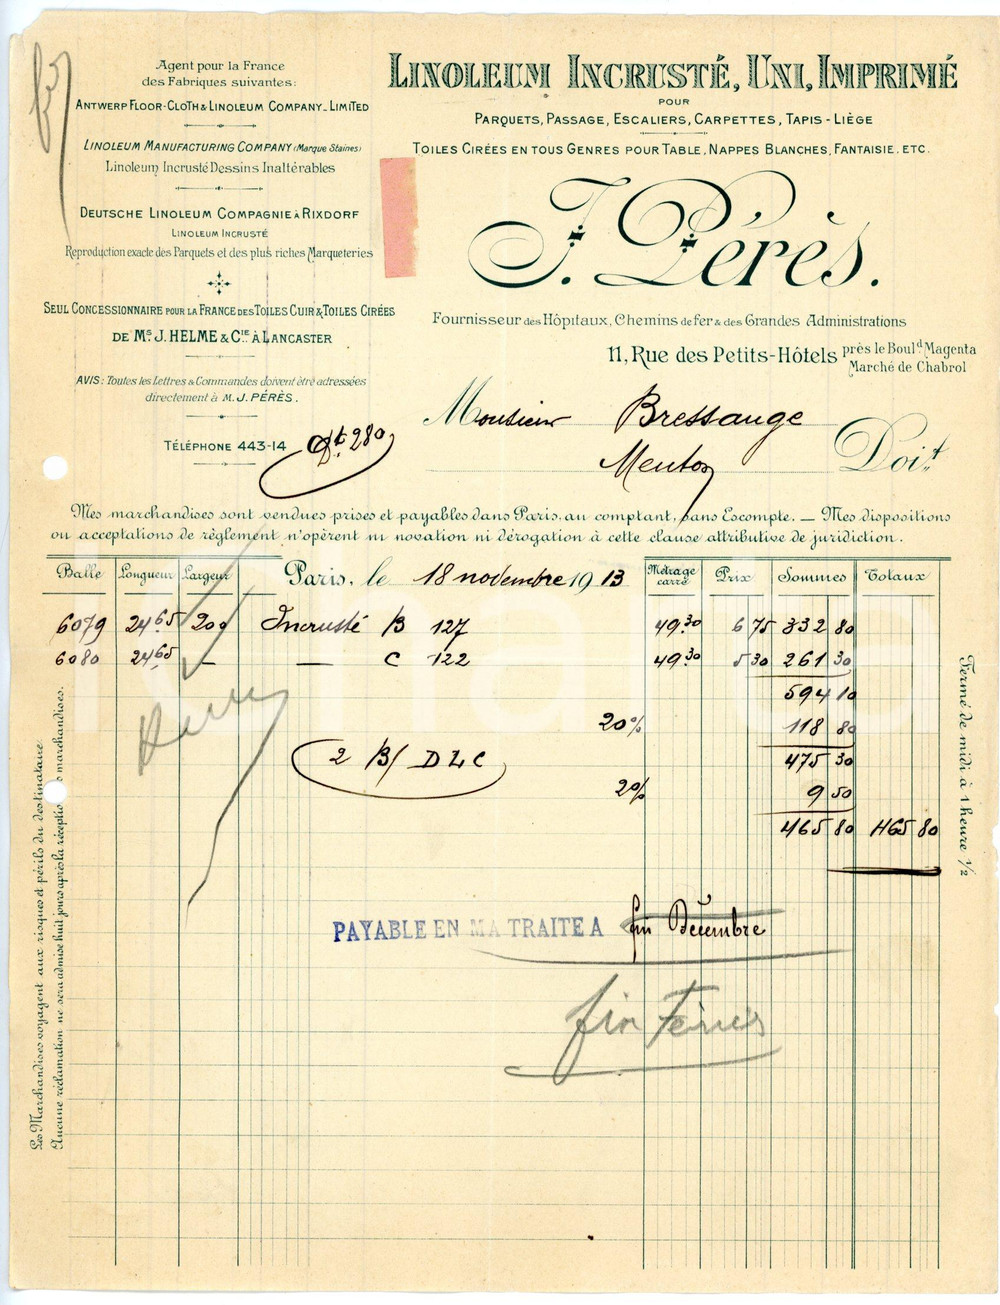 Agent pour la France
des Fabriques suivantes:
ANTWERP FLOOR-CLOTH & LINOLEUM COMPANY_LIMITED
LINOLEUM MANUFACTURING COMPANY (Marque Staines)
Linoleum Incrusté Dessins Inaltérables
DEUTSCHE LINOLEUM COMPAGNIE À RIXDORF
LINOLEUM INCRUSTÉ
Reproduction exacte des Parquets et des plus riches Marqueteries
SEUL CONCESSIONNAIRE POUR LA FRANCE DES TOILES CUIR & TOILES CIRÉES
DE Ms. J. HELME & Cie À LANCASTER
AVIS: Toutes les Lettres & Commandes doivent être adressées
directement à M. J. PÉRÈS.
TÉLÉPHONE 443-14
LINOLEUM INCRUSTÉ, UNI, IMPRIMÉ
POUR
PARQUETS, PASSAGE, ESCALIERS, CARPETTES, TAPIS-LIÈGE
TOILES CIRÉES EN TOUS GENRES POUR TABLE, NAPPES BLANCHES, FANTAISIE. ETC.
J. Pérès.
Fournisseur des Hôpitaux, Chemins de fer & des Grandes Administrations
11, Rue des Petits-Hôtels près le Boul.d Magenta
Marché de Chabrol
280
Monsieur Bressange
Menton
Doit
Mes marchandises sont vendues prises et payables dans Paris, au comptant, sans Escompte. _ Mes dispositions
ou acceptations de règlement n'opèrent ni novation ni dérogation à cette clause attributive de juridiction.
Balle Longueur Largeur Paris, le 18 novembre 1913 Métrage carré Prix Sommes Totaux
6079 24.65 200 Incrusté B 127 49.30 6 75 332 80
6080 24.65 _ _ C 122 49.30 5 30 261 30
594 10
20% 118 80
475 30
2 B/ DLC
2% 9 50
465 80 465 80
PAYABLE EN MA TRAITE A fin Décembre
fin Février
Les Marchandises voyagent aux risques et périls du destinataire.
Aucune réclamation ne sera admise huit jours après la réception des marchandises.
Fermé de midi à 1 heure 1/2